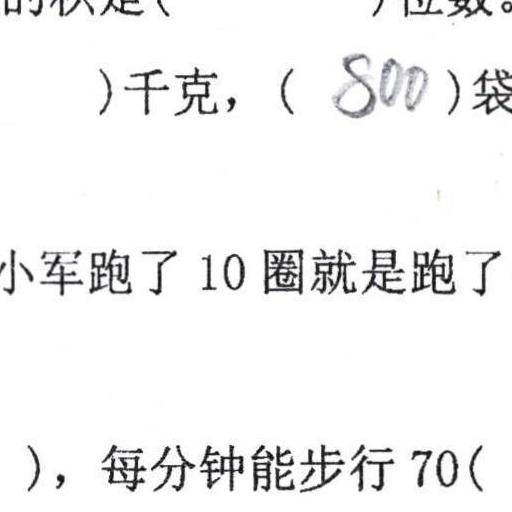 的积是( )位数。
)千克，( 800 )袋
小军跑了 10 圈就是跑了
)，每分钟能步行 70(